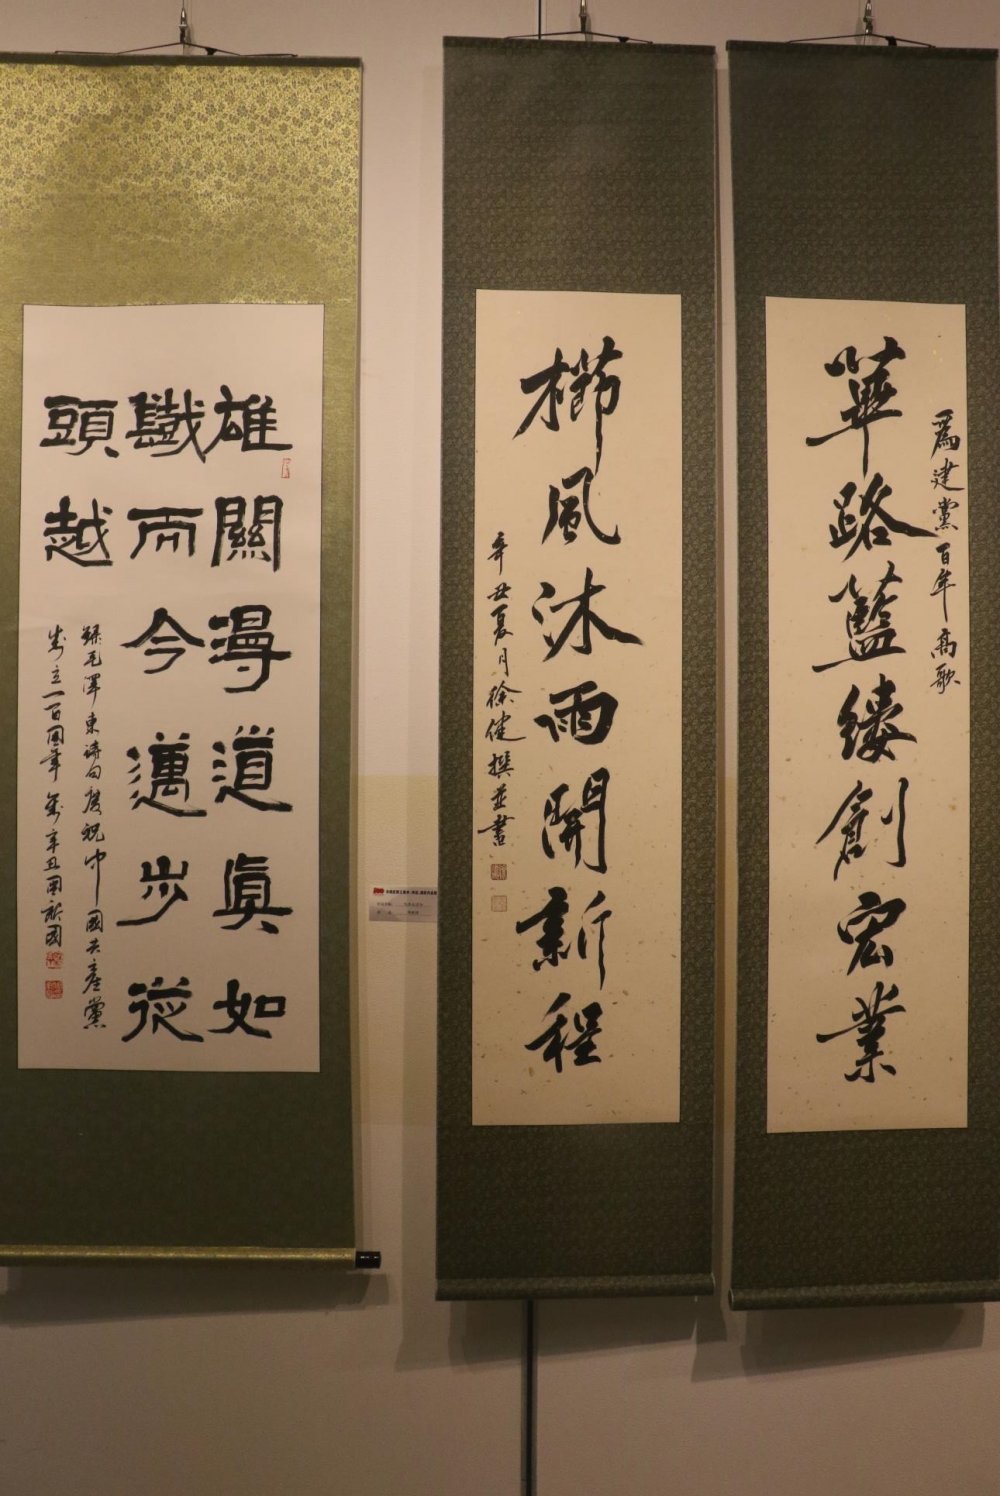 為建黨百年高歌
篳路藍縷創宏業
櫛風沐雨開新程
辛丑夏月徐健撰並書
雄關漫道真如
鐵而今邁步從
頭越
錄毛澤東詩句慶祝中國共產黨
成立一百周年